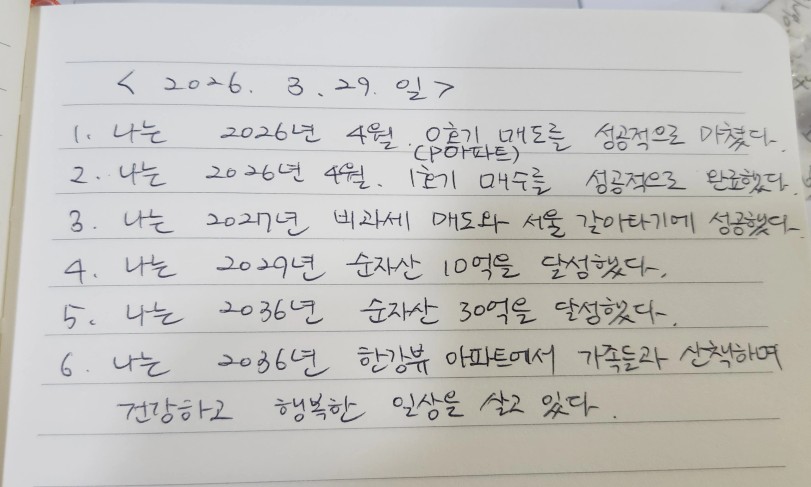 < 2026. 3. 29. 일 >
1. 나는 2026년 4월. 0호기 매도를 성공적으로 마쳤다.
(P아파트)
2. 나는 2026년 4월. 1호기 매수를 성공적으로 완료했다.
3. 나는 2027년 비과세 매도와 서울 갈아타기에 성공했다.
4. 나는 2029년 순자산 10억을 달성했다.
5. 나는 2036년 순자산 30억을 달성했다.
6. 나는 2036년 한강뷰 아파트에서 가족들과 산책하며
건강하고 행복한 일상을 살고 있다.